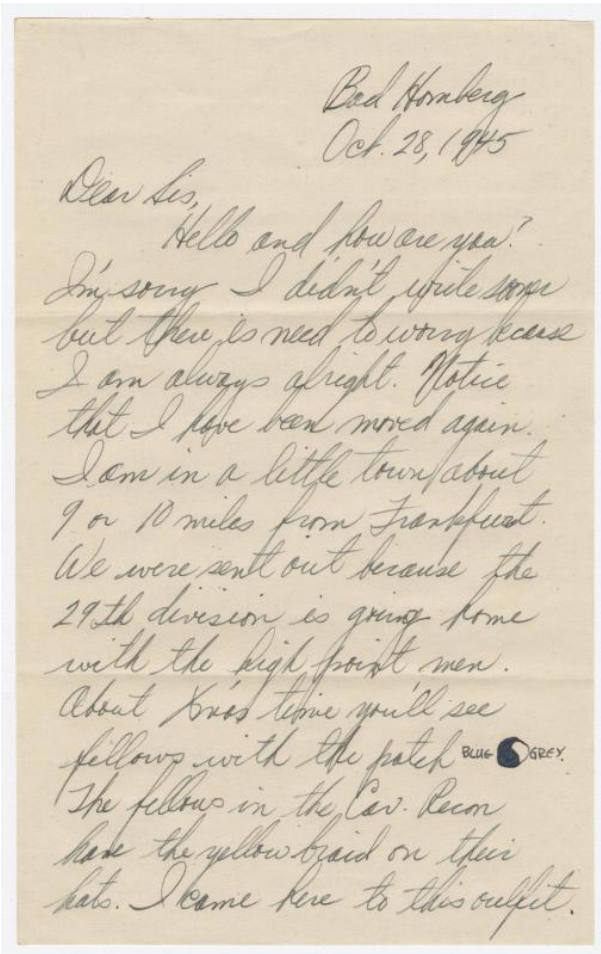 Bad Homberg
Oct. 28, 1945
Dear Sis,
Hello and how are you?
I'm sorry I didn't write sooner
but there is need to worry because
I am always alright. Notice
that I have been moved again.
I am in a little town about
9 or 10 miles from Frankfurt.
We were sent out because the
29th division is going home
with the high point men.
About Xmas time you'll see
fellows with the patch BLUE GREY.
The fellows in the Cav. Recon
have the yellow braid on their
hats. I came here to this outfit.